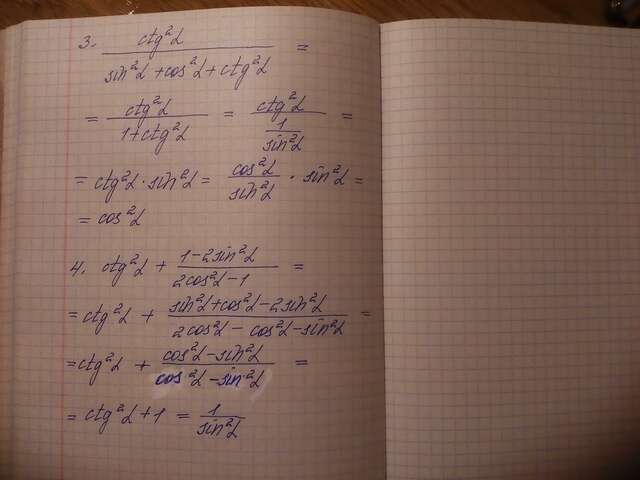 3. ctg²α / (sin²α + cos²α + ctg²α) =
= ctg²α / (1 + ctg²α) = ctg²α / (1 / sin²α) =
= ctg²α · sin²α = cos²α / sin²α · sin²α =
= cos²α
4. ctg²α + (1 - 2sin²α) / (2cos²α - 1) =
= ctg²α + (sin²α + cos²α - 2sin²α) / (2cos²α - cos²α - sin²α) =
= ctg²α + (cos²α - sin²α) / (cos²α - sin²α) =
= ctg²α + 1 = 1 / sin²α